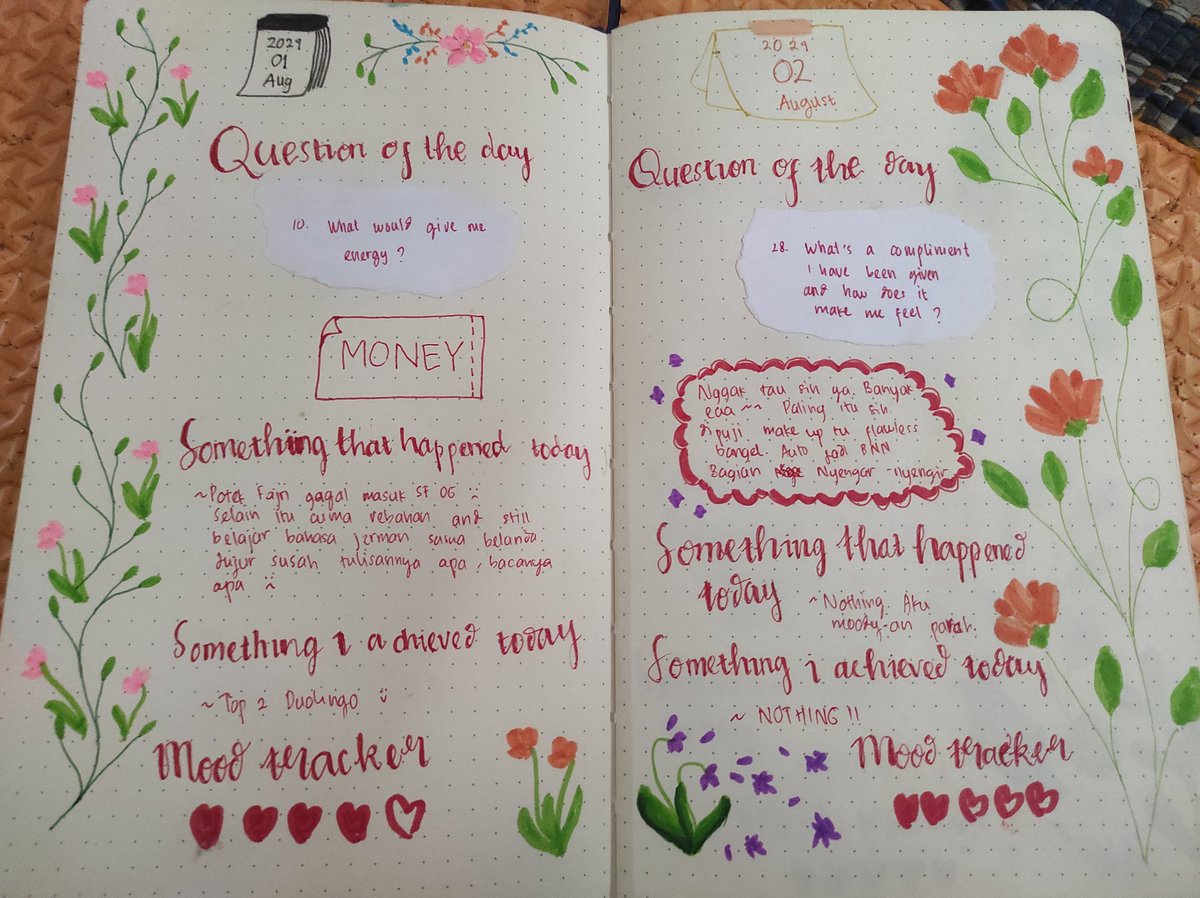 2021
01
Aug
Question of the day
10. What would give me
energy ?
MONEY
Something that happened today
~Potek Fajri gagal masuk SF 06
Selain itu cuma rebahan and still
belajar bahasa jerman sama belanda
Jujur susah tulisannya apa, bacanya
apa
Something I achieved today
~ Top 2 Duolingo
Mood tracker
2021
02
August
Question of the day
28. What's a compliment
I have been given
and how does it
make me feel ?
Nggak tau sih ya. Banyak
eaa ~~ Paling itu sih
puji make up tu flawless
banget. Auto jadi
Bagian Nyengar-nyengir
Something that happened
today
~Nothing. Aku
moody-an parah.
Something i achieved today
~ NOTHING !!
Mood tracker